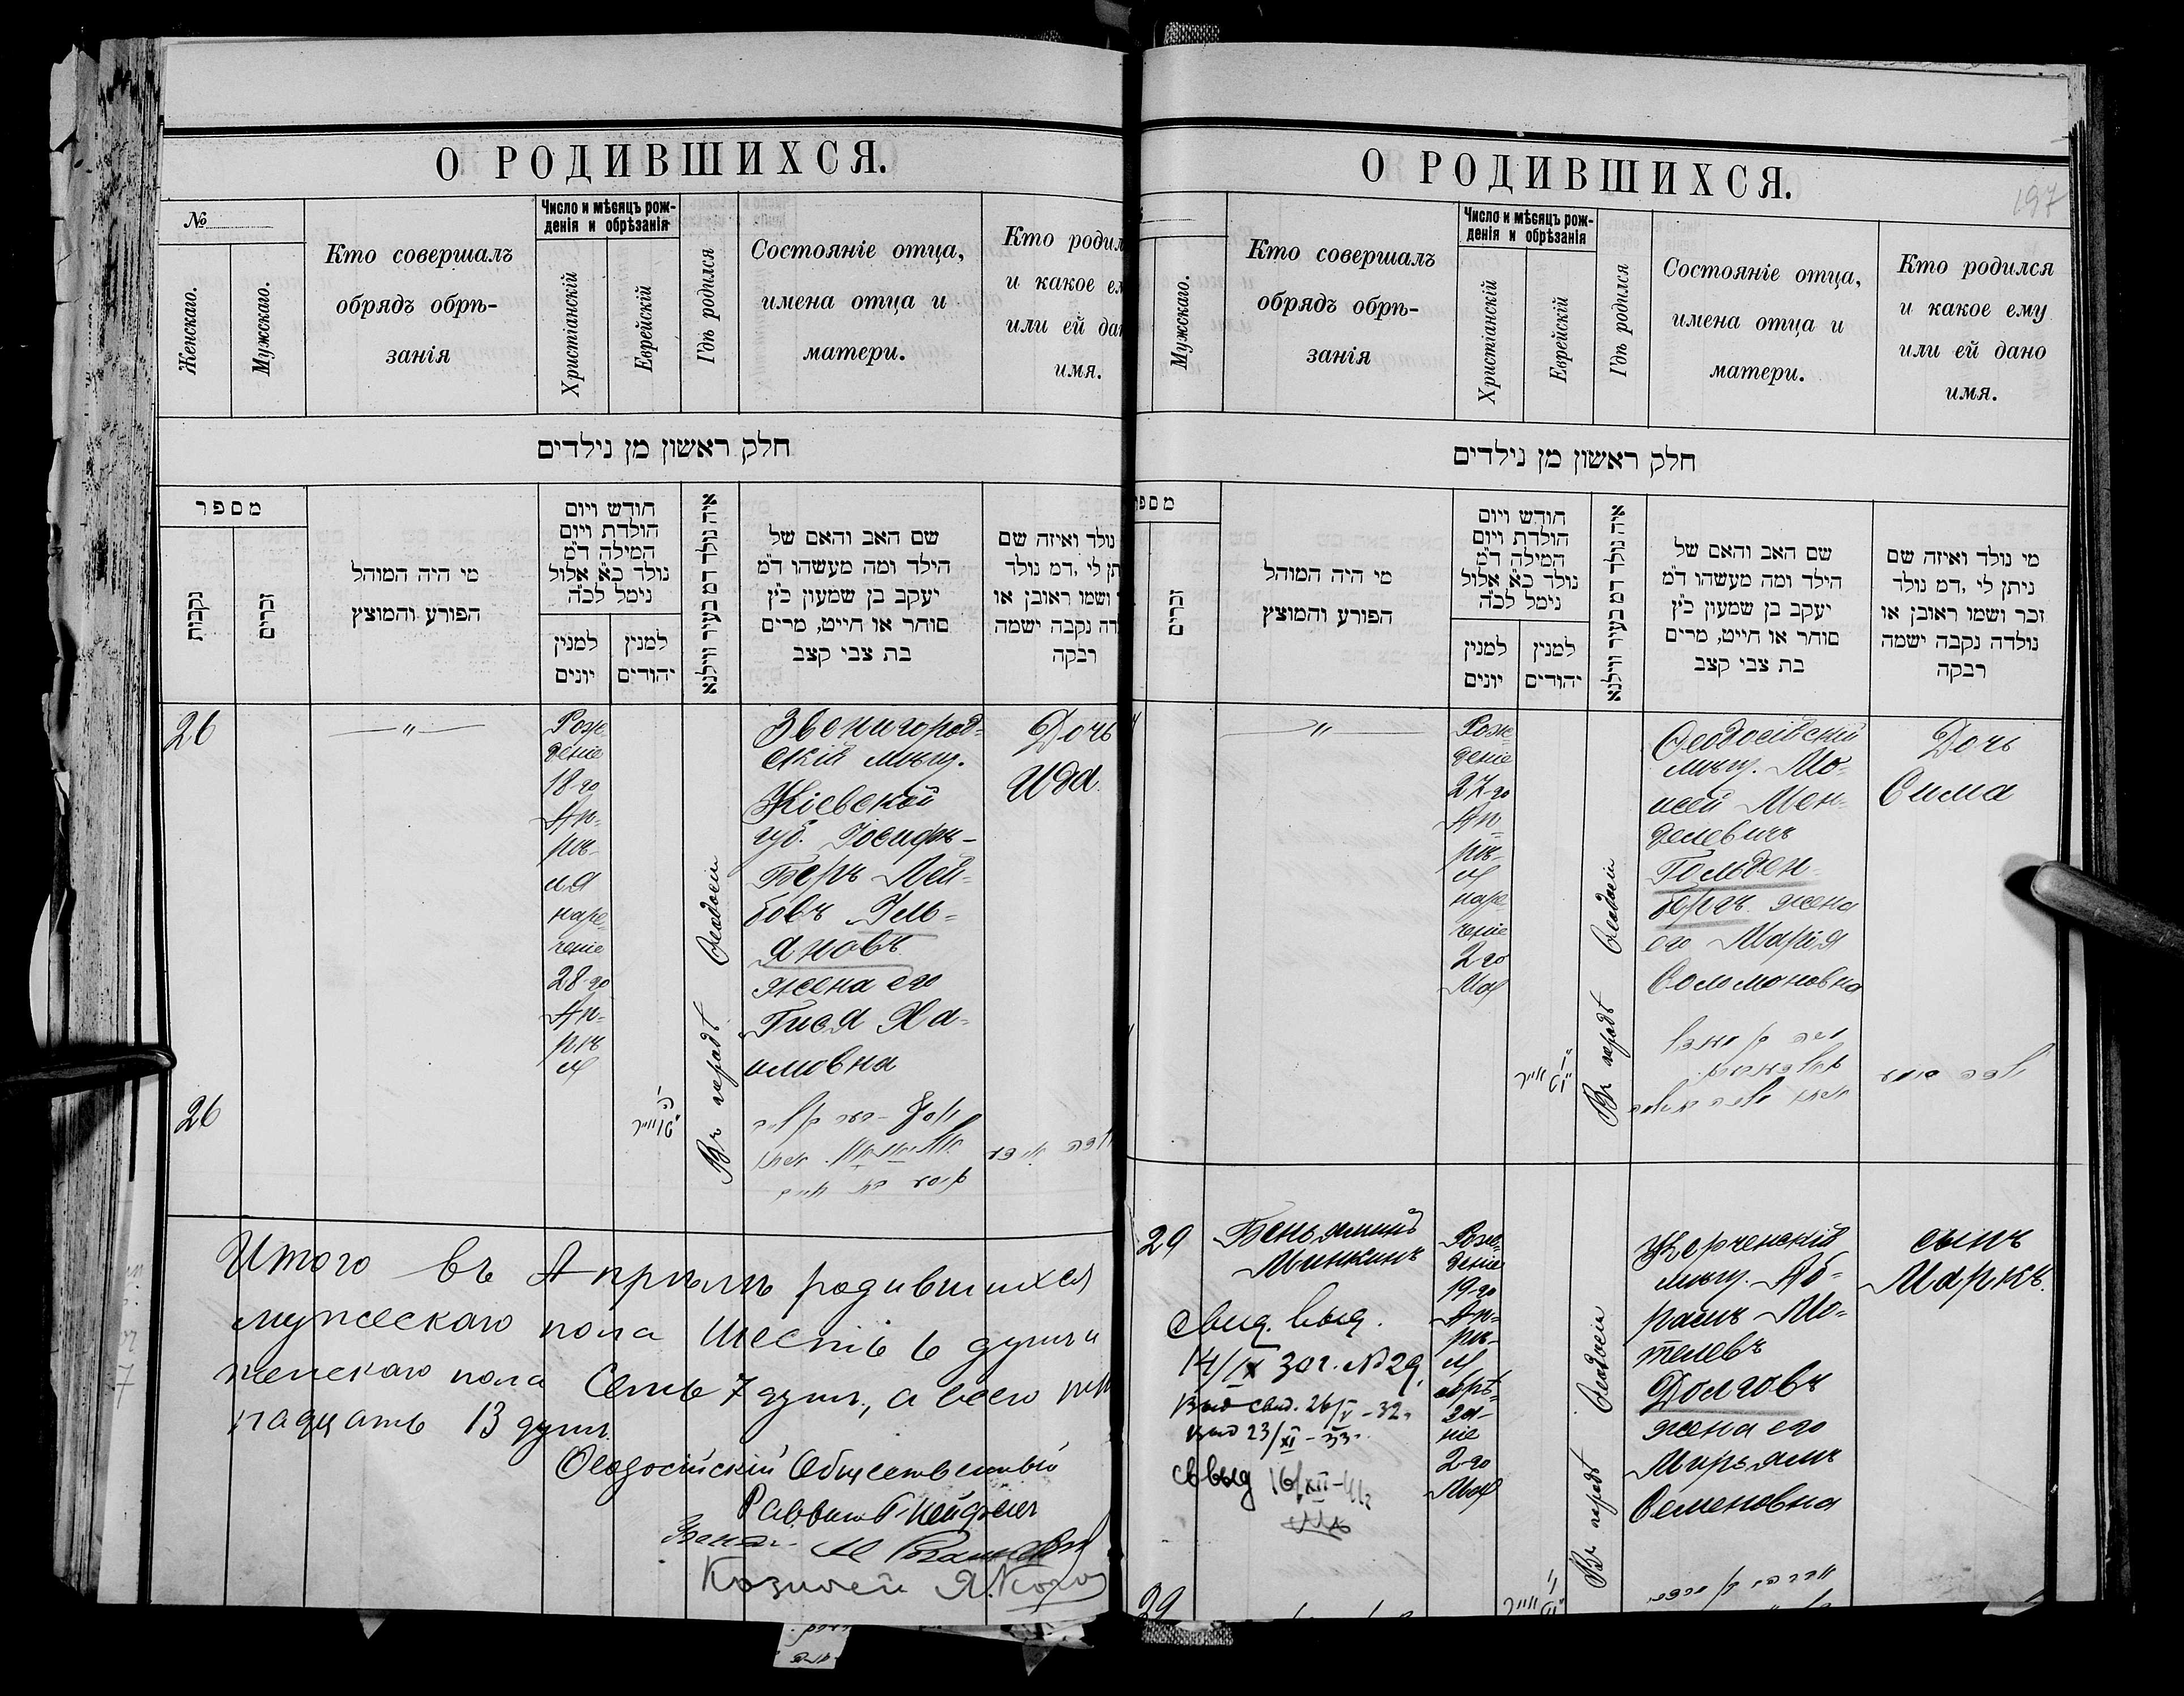 О РОДИВШИХСЯ.
№
Женскаго.
Мужскаго.
Кто совершалъ
обрядъ обрѣ-
занія
Число и мѣсяцъ рож-
денія и обрѣзанія
Христіанскій
Еврейскій
Гдѣ родился
Состояніе отца,
имена отца и
матери.
Кто родил
и какое ем
или ей дан
имя.
חלק ראשון מן נילדים
מספר
נקבות
זכרים
מי היה המוהל
הפורע והמוצץ
חודש ויום
הולדת ויום
המילה ד"מ
נולד כ"א אלול
נימל לכ"ה
למנין
יונים
למנין
יהודים
איה נולד דמ בעיר ווילנא
שם האב והאם של
הילד ומה מעשהו ד"מ
יעקב בן שמעון כ"ץ
סוחר או חייט, מרים
בת צבי קצב
נולד ואיזה שם
תן לי, דמ נולד
ושמו ראובן או
דה נקבה ישמה
רבקה
26
Рож
деніе
18-го
Ап-
рѣ-
ля
наре
ченіе
28-го
Ап-
рѣ
ля
Въ городѣ Ѳеодосіи
Звенигород-
скій мѣщ.
Кіевской
губ. Іосифъ-
Беръ Лей-
бовъ Уль-
яновъ
жена его
Гися Ха-
имовна
Дочь
Ида
26
Итого въ Апрѣлѣ родившихся
мужескаго пола шесть 6 душъ и
женскаго пола семь 7 душъ, а всего три
надцать 13 душъ.
Ѳеодосійскій Общественный
Раввинъ
О РОДИВШИХСЯ.
197
Мужскаго.
Кто совершалъ
обрядъ обрѣ-
занія
Число и мѣсяцъ рож-
денія и обрѣзанія
Христіанскій
Еврейскій
Гдѣ родился
Состояніе отца,
имена отца и
матери.
Кто родился
и какое ему
или ей дано
имя.
חלק ראשון מן נילדים
מספ
זכרים
מי היה המוהל
הפורע והמוצץ
חודש ויום
הולדת ויום
המילה ד"מ
נולד כ"א אלול
נימל לכ"ה
למנין
יונים
למנין
יהודים
איה נולד דמ בעיר ווילנא
שם האב והאם של
הילד ומה מעשהו ד"מ
יעקב בן שמעון כ"ץ
סוחר או חייט, מרים
בת צבי קצב
מי נולד ואיזה שם
ניתן לי, דמ נולד
זכר ושמו ראובן או
נולדה נקבה ישמה
רבקה
Рож
деніе
27-го
Ап
рѣ-
ля
наре
ченіе
2-го
Мая
Въ городѣ Ѳеодосіи
Ѳеодосійскій
мѣщ. Мо-
исей Мен-
делевичъ
Гольден-
бергъ жена
его Марія
Соломоновна
Дочь
Сима
29
Беньяминъ
Минкинъ
Свид. выд.
14/IX 30 г. № 29
Выд свид. 26/V - 32 г
выд 23/XI - 33 г.
Св выд 16/XII-41 г
Рож-
деніе
19-го
Ап-
рѣ-
ля
обрѣ-
за-
ніе
2-го
Мая
Въ городѣ Ѳеодосіи
Керченскій
мѣщ. Аб-
рамъ Мо-
телевъ
Долговъ
жена его
Мирьямъ
Семеновна
сынъ
Маркъ.
29